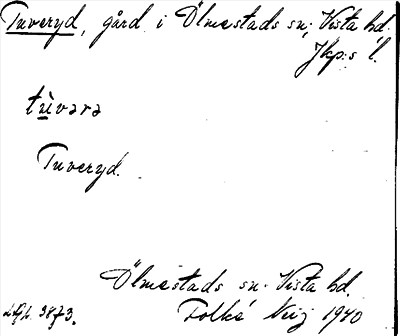 Tuveryd, gård i Ölmestads sn; Vista hd.
Jkp:s l.
tùvərə
Tuveryd.
Ölmestads sn. Vista hd.
3873. Folke 1940